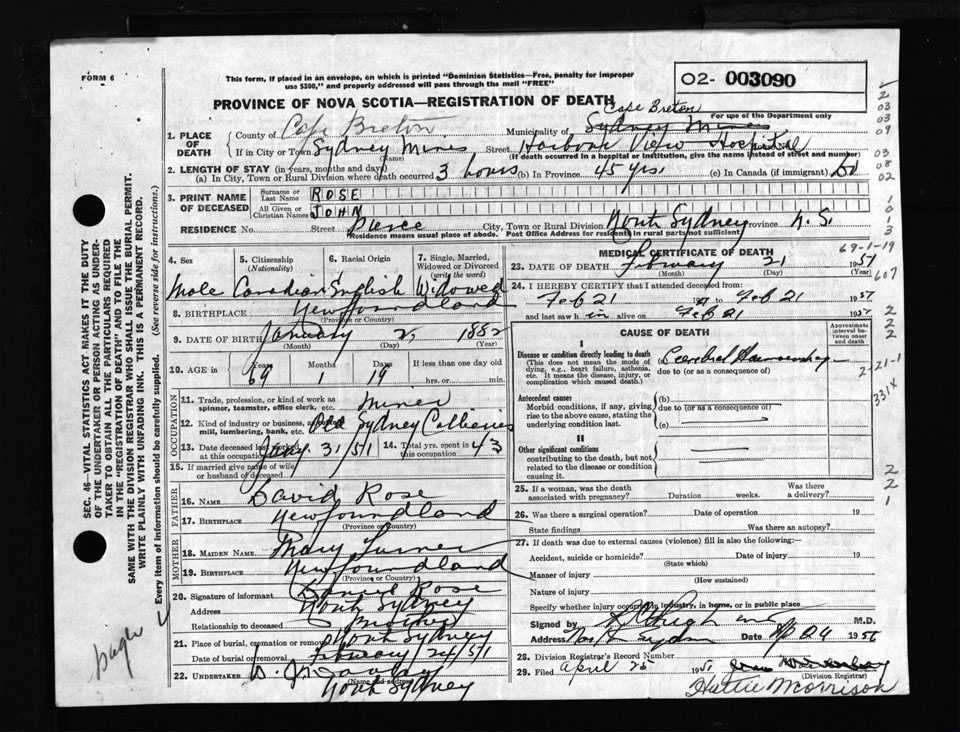 FORM 6
This form, if placed in an envelope, on which is printed "Dominion Statistics—Free, penalty for improper
use $300," and properly addressed will pass through the mail "FREE"
02- 003090
PROVINCE OF NOVA SCOTIA—REGISTRATION OF DEATH
For use of the Department only
Cape Breton
1. PLACE OF DEATH
County of Cape Breton Municipality of Sydney Mines
If in City or Town Sydney Mines Street Harbour View Hospital
(Name) (If death occurred in a hospital or institution, give the name instead of street and number)
2. LENGTH OF STAY (in years, months and days)
(a) In City, Town or Rural Division where death occurred 3 hours (b) In Province 45 yrs. (c) In Canada (if immigrant)
3. PRINT NAME OF DECEASED
Surname or Last Name ROSE
All Given or Christian Names JOHN
RESIDENCE No. Street Pierce City, Town or Rural Division North Sydney Province N.S.
"Residence means usual place of abode. Post Office Address for residents in rural parts not sufficient"
4. Sex 5. Citizenship (Nationality) 6. Racial Origin 7. Single, Married, Widowed or Divorced (write the word)
Male Canadian English Widowed
8. BIRTHPLACE Newfoundland
(Province or Country)
9. DATE OF BIRTH January 2, 1882
(Month) (Day) (Year)
10. AGE in Years 69 1 19 If less than one day
hrs. or min.
OCCUPATION
11. Trade, profession, or kind of work as
spinner, teamster, office clerk, etc. Miner
12. Kind of industry or business, as
mill, lumbering, bank, etc. Old Sydney Collieries
13. Date deceased last worked at this occupation Jany. 31/51 14. Total yrs. spent in this occupation 43
15. If married give name of wife
or husband of deceased
FATHER
16. NAME David Rose
17. BIRTHPLACE Newfoundland
(Province or Country)
MOTHER
18. MAIDEN NAME Mary Turner
19. BIRTHPLACE Newfoundland
(Province or Country)
20. Signature of informant Daniel Rose
Address North Sydney
Relationship to deceased Brother
21. Place of burial, cremation or removal North Sydney
Date of burial or removal February 24/51
22. UNDERTAKER
(Name and address)
North Sydney
MEDICAL CERTIFICATE OF DEATH
69-1-19
23. DATE OF DEATH February 21 1951
(Month) (Day) (Year)
607
24. I HEREBY CERTIFY that I attended deceased from
Feb 21 to Feb 21 1951
and last saw him alive on Feb 21
CAUSE OF DEATH
Approximate interval between onset and death
I
Disease or condition directly leading to death
(This does not mean the mode of dying, e.g., heart failure, asthenia, etc. It means the disease, injury, or complication which caused death.)
Cerebral Haemorrhage
due to (or as a consequence of)
2-21-1
331X
Antecedent causes
Morbid conditions, if any, giving rise to the above cause, stating the underlying condition last.
(b)
due to (or as a consequence of)
(c)
II
Other significant conditions
contributing to the death, but not related to the disease or condition causing it.
25. If a woman, was the death associated with pregnancy? Duration weeks. Was there a delivery?
26. Was there a surgical operation? Date of operation 19
State findings Was there an autopsy?
27. If death was due to external causes (violence) fill in also the following:
Accident, suicide or homicide? Date of injury 19
(State which)
Manner of injury
(How sustained)
Nature of injury
Specify whether injury occurred in industry, in home, or in public place
Signed by M.D.
Address Date 24 19
28. Division Registrar's Record Number
29. Filed April 25 1951
(Division Registrar)
Hattie Morrison
SEC. 46—VITAL STATISTICS ACT MAKES IT THE DUTY
OF THE UNDERTAKER OR PERSON ACTING AS UNDER-
TAKER TO OBTAIN ALL THE PARTICULARS REQUIRED
IN THE "REGISTRATION OF DEATH" AND TO FILE THE
SAME WITH THE DIVISION REGISTRAR WHO SHALL ISSUE THE BURIAL PERMIT.
WRITE PLAINLY WITH UNFADING INK. THIS IS A PERMANENT RECORD.
Every item of information should be carefully supplied. (See reverse side for instructions.)